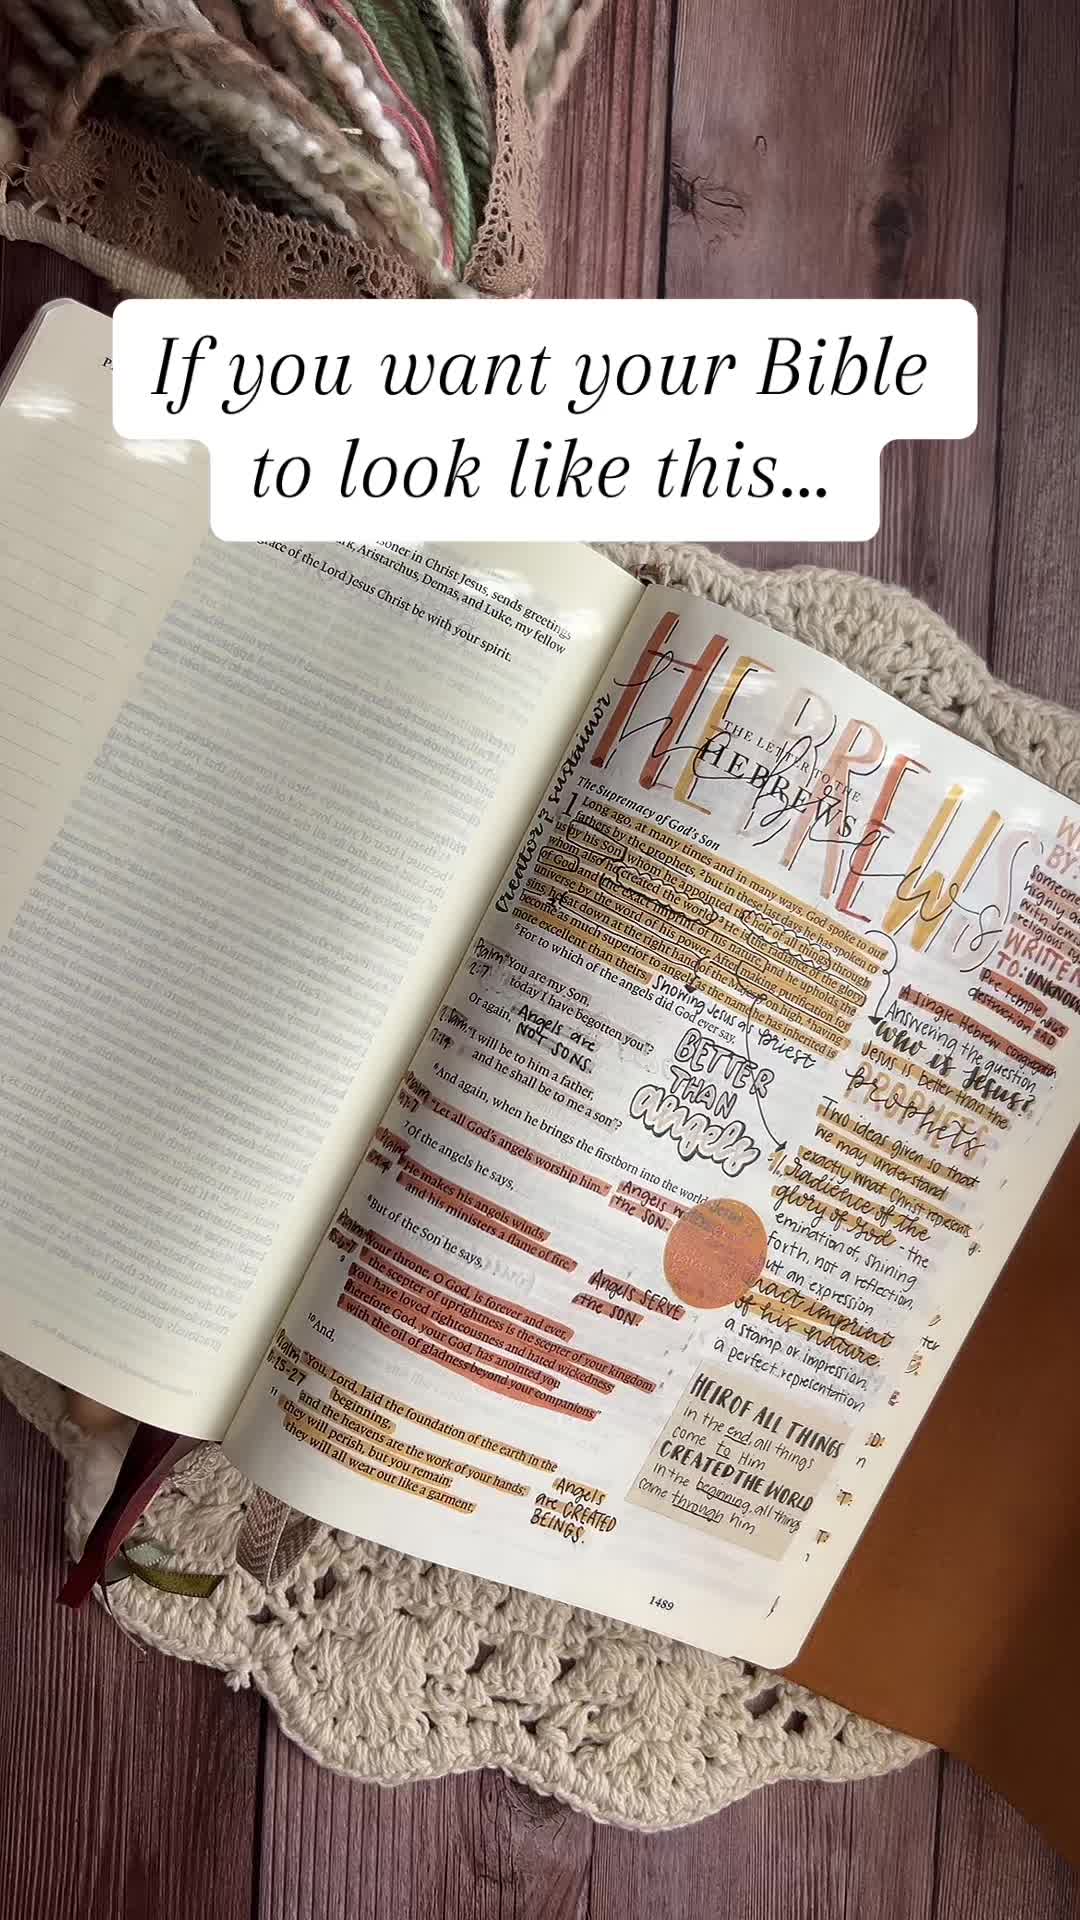 If you want your Bible
to look like this...
soner in Christ Jesus, sends greetings
Aristarchus, Demas, and Luke, my fellow
grace of the Lord Jesus Christ be with your spirit.
HEBREWS
hebrews
THE LETTER TO THE
HEBREWS
creator & sustainor
The Supremacy of God's Son
1 Long ago, at many times and in many ways, God spoke to our
fathers by the prophets, 2 but in these last days he has spoken to
us by his Son, whom he appointed the heir of all things, through
whom also he created the world. 3 He is the radiance of the glory
of God and the exact imprint of his nature, and he upholds the
universe by the word of his power. After making purification for
sins, he sat down at the right hand of the Majesty on high, 4 having
become as much superior to angels as the name he has inherited is
more excellent than theirs.
5 For to which of the angels did God ever say,
Psalm 2:7
"You are my Son,
today I have begotten you"?
Or again,
Angels are
NOT SONS.
2 Sam 7:14
"I will be to him a father,
and he shall be to me a son"?
6 And again, when he brings the firstborn into the world,
"Let all God's angels worship him."
7 Of the angels he says,
Psalm
"He makes his angels winds,
and his ministers a flame of fire."
8 But of the Son he says,
Psalm
"Your throne, O God, is forever and ever,
the scepter of uprightness is the scepter of your kingdom.
9 You have loved righteousness and hated wickedness;
therefore God, your God, has anointed you
with the oil of gladness beyond your companions."
10 And,
Psalm
"You, Lord, laid the foundation of the earth in the
beginning,
and the heavens are the work of your hands;
11 they will perish, but you remain;
they will all wear out like a garment,
Showing Jesus as priest
BETTER
THAN
angels
Angels
the SON.
Angels SERVE
the SON.
Angels
are CREATED
BEINGS.
BY:
Someone
highly
with Jewish
religious
WRITTEN
TO: UNKNOWN
Pre temple
destruction
A single Hebrew congregation
Answering the question
WHO is Jesus?
Jesus is better than the
PROPHETS
prophets
Two ideas given so that
we may understand
exactly what Christ represents
1. radience of the
glory of God - the
emination of, shining
forth, not a reflection,
but an expression
exact imprint
of his nature.
a stamp or impression,
a perfect representation
HEIR OF ALL THINGS
in the end, all things
come to Him
CREATED THE WORLD
in the beginning, all things
came through him
1489